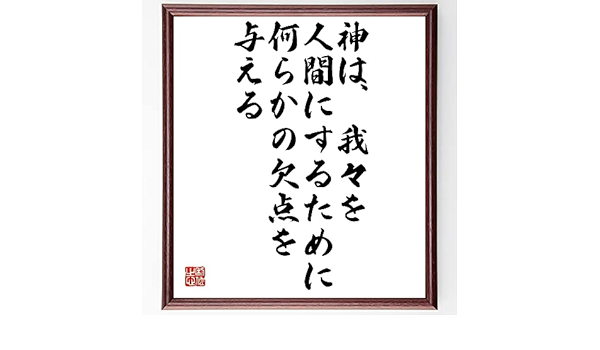 神は、我々を
人間にするために
何らかの欠点を
与える